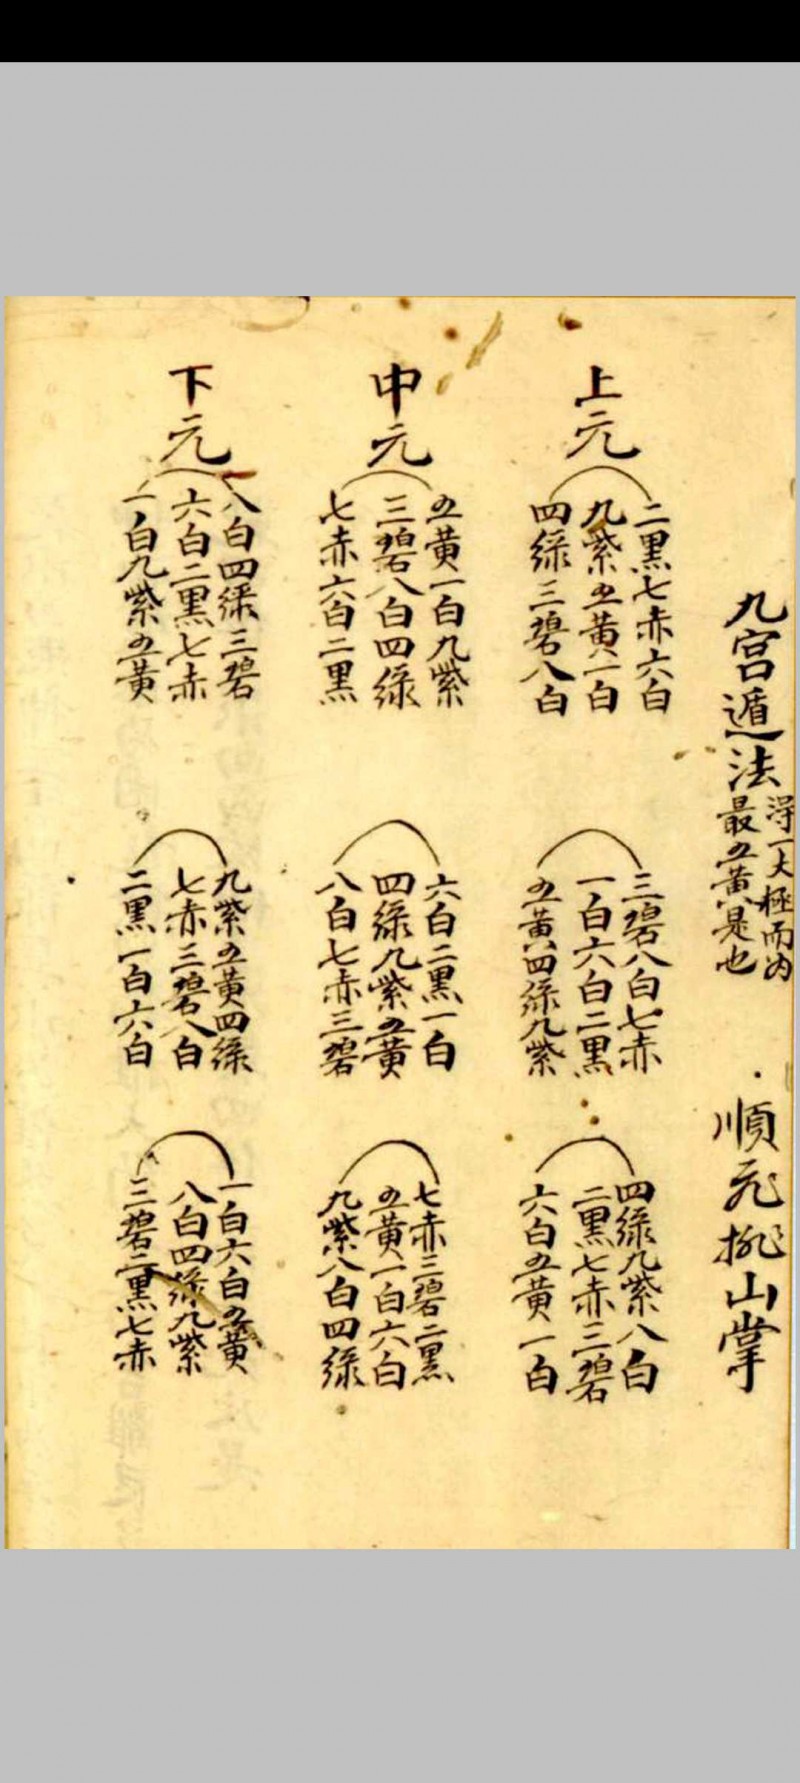 九宮遁法
淂一大極而内
最五黃是也
順元挑山掌
上元
二黑七赤六白
九紫五黃一白
四綠三碧八白
三碧八白七赤
一白六白二黑
五黃四綠九紫
四綠九紫八白
二黑七赤三碧
六白五黃一白
中元
五黃一白九紫
三碧八白四綠
七赤六白二黑
六白二黑一白
四綠九紫五黃
八白七赤三碧
七赤三碧二黑
五黃一白六白
九紫八白四綠
下元
八白四綠三碧
六白二黑七赤
一白九紫五黃
九紫五黃四綠
七赤三碧八白
二黑一白六白
一白六白五黃
八白四綠九紫
三碧二黑七赤